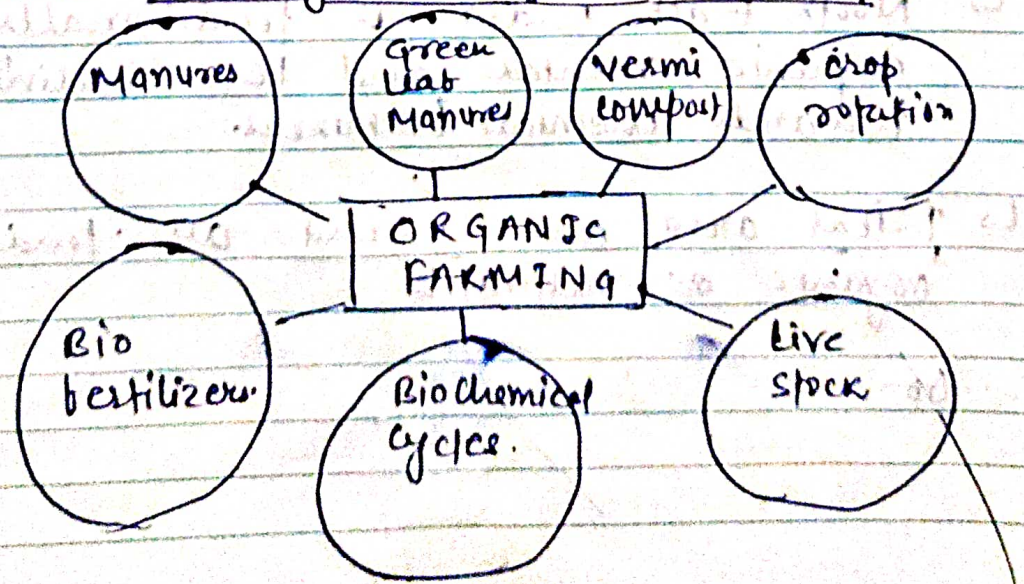 Manures
Green
Leaf
Manures
Vermi
compost
crop
rotation
ORGANIC
FARMING
Bio
fertilizers.
Biochemical
cycles.
Live
stock